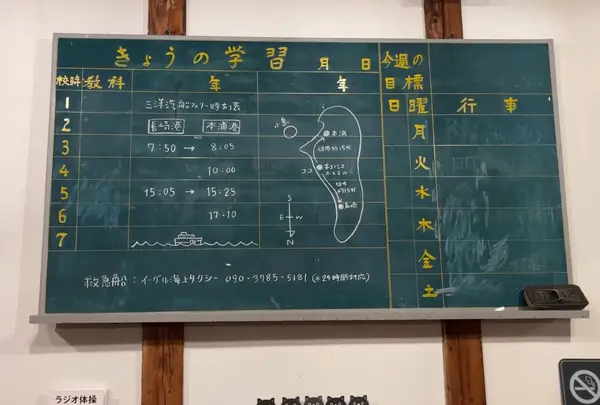 きょうの学習 月 日
校時 教科 年 年
1 三洋汽船フェリー時刻表
2 長崎港 本浦港
3 7:50 → 8:05
4 10:00
5 15:05 → 15:25
6 17:10
7
小島
本浦
徒歩約15分
ココ
ネコノシマホステル
徒歩約15分
長崎
S
E W
N
救急船:イーグル海上タクシー 090-3785-5181 (※24時間対応)
今週の目標
日曜 行事
月
火
水
木
金
土
ラジオ体操